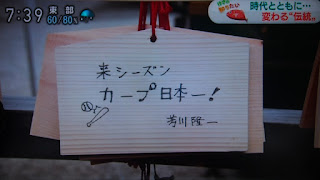 7:39
東部
60/80%
時代とともに…
変わる"伝統"
来シーズン
カープ日本一!
芳川隆一